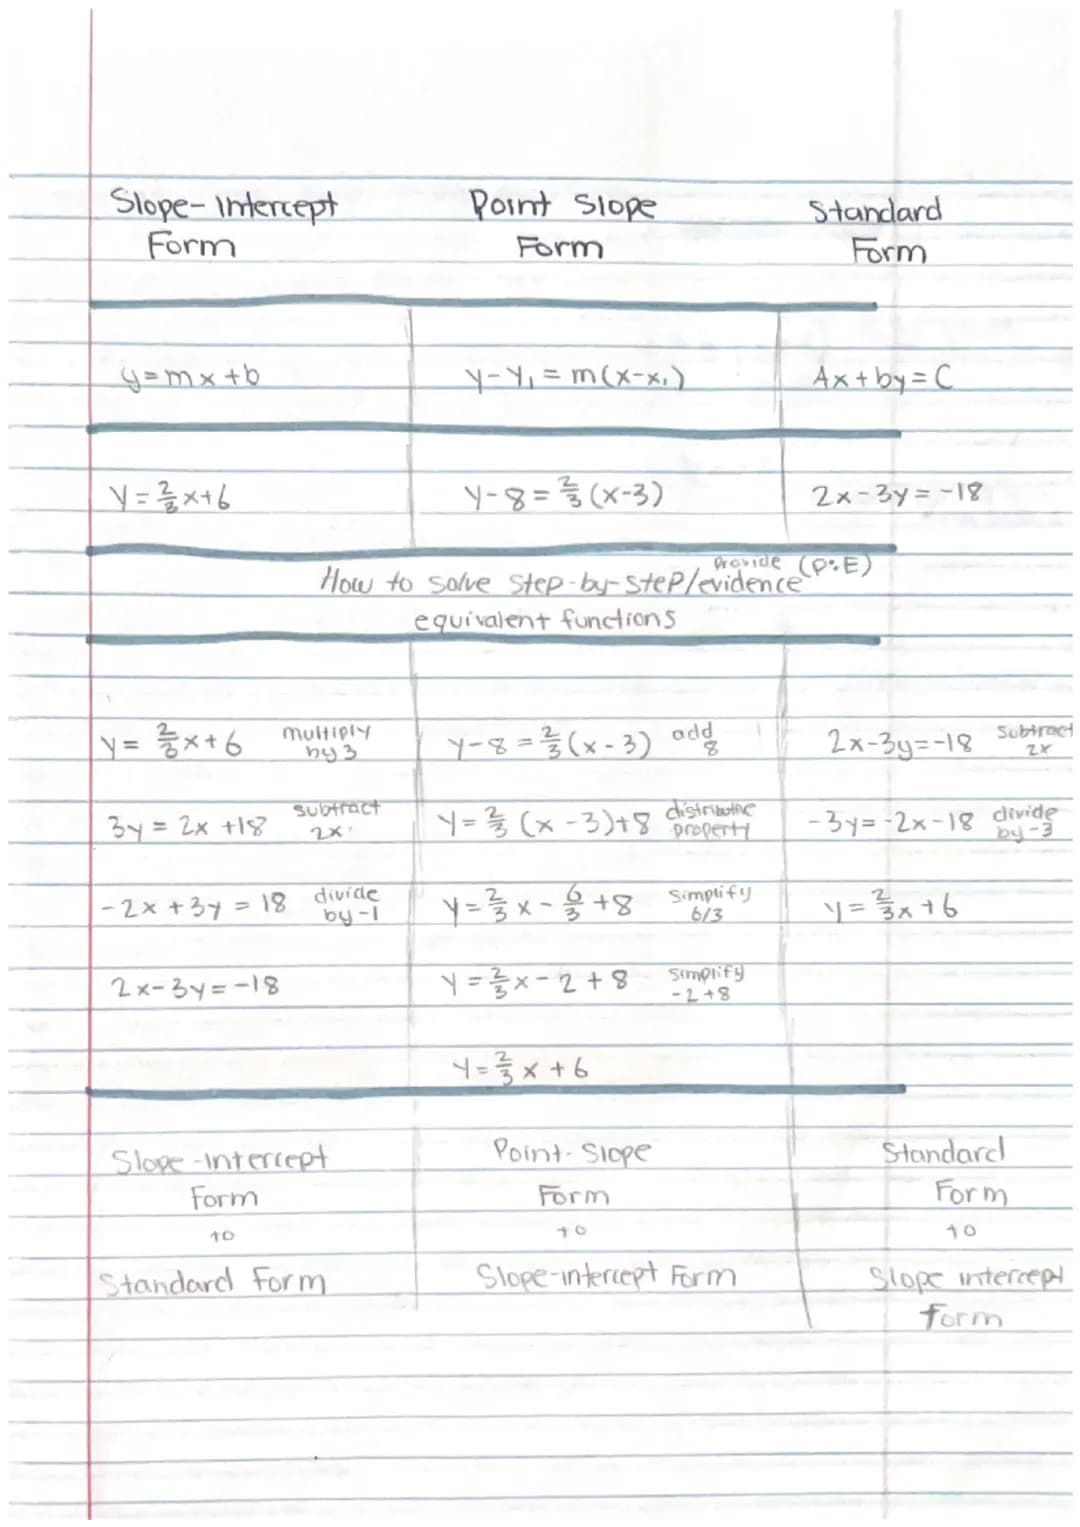 Slope-Intercept Point Slope Standard
Form Form Form
y=mx+b y-y₁=m(x-x₁) Ax+by=C
y=2/3x+6 y-8=2/3(x-3) 2x-3y=-18
Provide (P:E)
How to solve step-by-step/evidence
equivalent functions
y=2/3x+6 multiply by 3 y-8=2/3(x-3) add 8 2x-3y=-18 Subtract 2x
3y=2x+18 subtract 2x y=2/3(x-3)+8 distributive property -3y=-2x-18 divide by -3
-2x+3y=18 divide by -1 y=2/3x-6/3+8 Simplify 6/3 y=2/3x+6
2x-3y=-18 y=2/3x-2+8 simplify -2+8
y=2/3x+6
Slope-intercept Point-Slope Standard
Form Form Form
to to to
Standard Form Slope-intercept Form Slope intercept
form